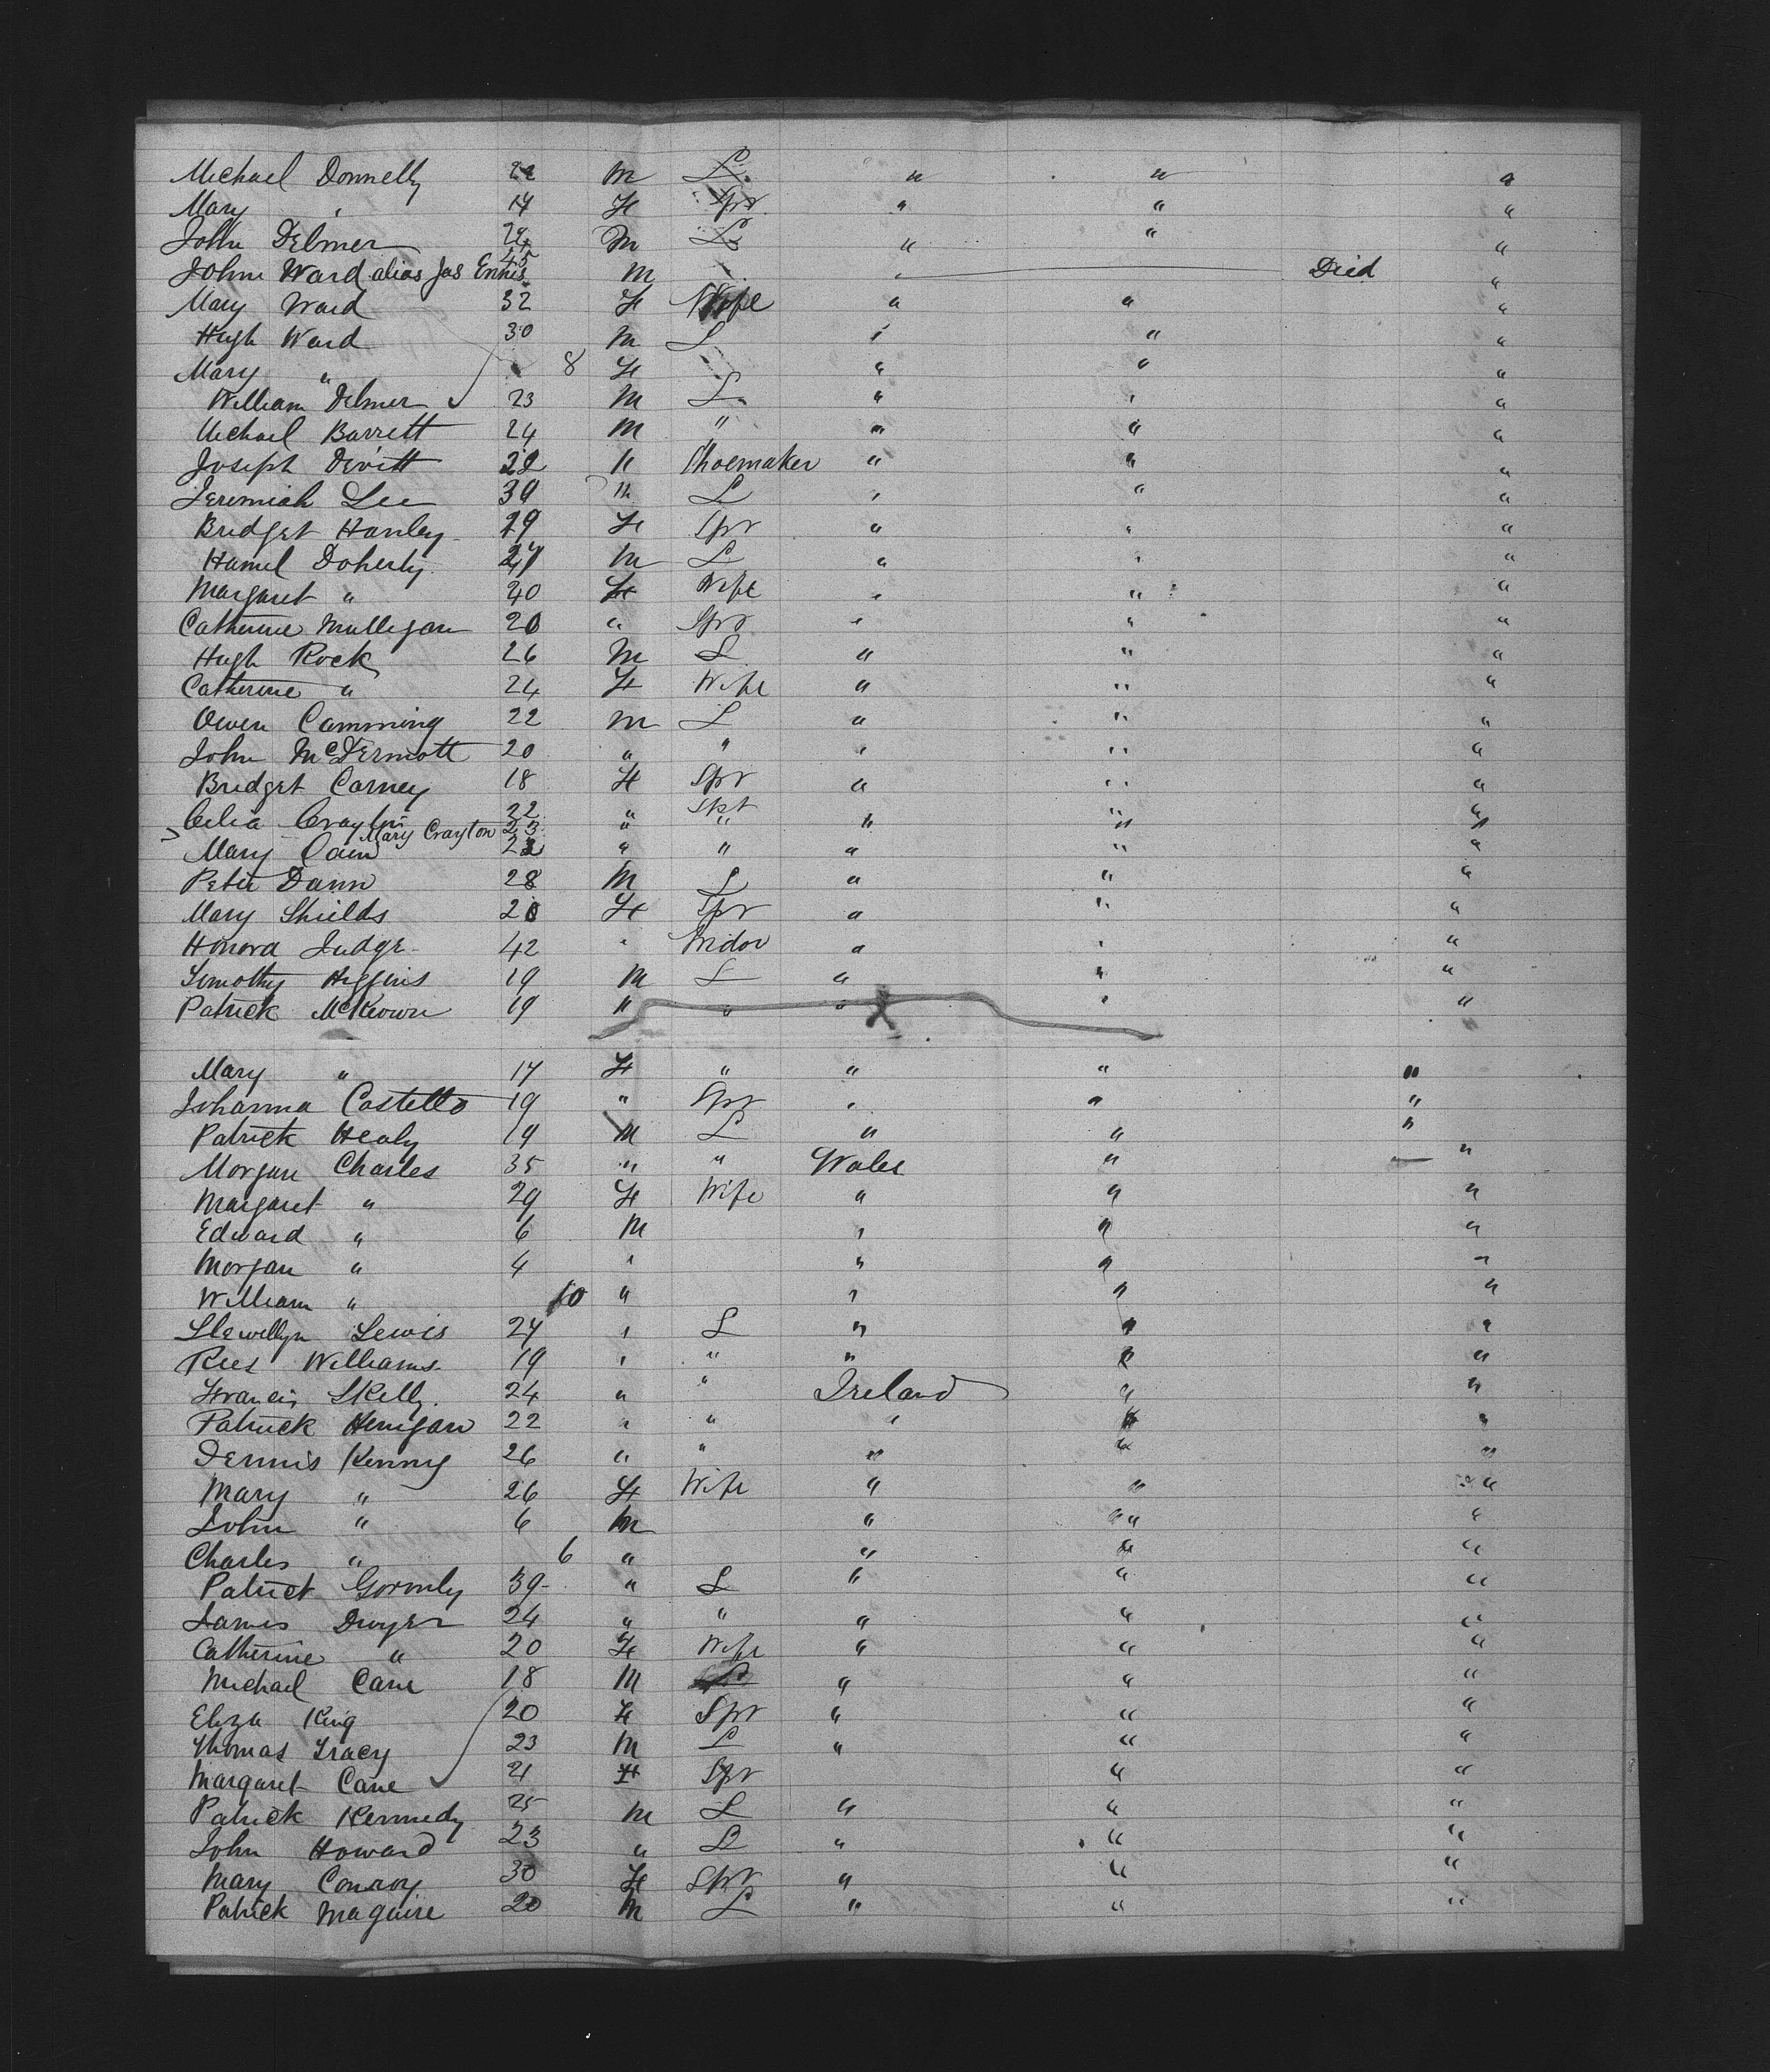 Michael Donnelly 22 M L " " "
Mary " 14 F Spr " " "
John Delmer 24 M L " " "
John Ward alias Jas Ennis 45 M Died "
Mary Ward 32 F Wife " " "
Hugh Ward 30 M L " " "
Mary " 8 F " " "
William Delmer 23 M L " " "
Michael Barrett 24 M " " " "
Joseph Devitt 22 " Shoemaker " " "
Jeremiah Lee 39 M L " " "
Bridget Hanley 29 F Spr " " "
Doherty M L " " "
Margaret " 40 F Wife " " "
Catherine Mulligan 20 " Spr " " "
Hugh Rock 26 M L " " "
Catherine " 24 F Wife " " "
Owen Camming 22 M L " " "
John McDermott 20 " " " " "
Bridget Carney 18 F Spr " " "
Celia Crayton 22 " Spr
Mary Crayton 23 " " " " "
Mary Cain 22 " " " " "
Peter Dann 28 M L " " "
Mary Shields 20 F Spr " " "
Honora Judge 42 " Widow " " "
Timothy Higgins 19 M L " " "
Patrick McKeown 19 " " " X " "
Mary " 17 F " " " "
Johanna Costello 19 " Spr " " "
Patrick Healy 19 M L " " "
Morgan Charles 35 " " Wales " "
Margaret " 29 F Wife " " "
Edward " 6 M " " "
Morgan " 4 " " " "
William " 10 " " " "
Llewellyn Lewis 24 " L " " "
Rees Williams 19 " " " " "
Francis Skelly 24 " " Ireland " "
Patrick Henigan 22 " " " " "
Dennis Kenny 26 " " " " "
Mary " 26 F Wife " " "
John " 6 M " " "
Charles " 6 " " " "
Patrick Gormly 39 " L " " "
James Dwyer 24 " " " " "
Catherine " 20 F Wife " " "
Michael Cane 18 M L " " "
Eliza King 20 F Spr " " "
Thomas Tracy 23 M L " " "
Margaret Cane 21 F Spr " "
Patrick Kennedy 25 M L " " "
John Howard 23 " L " " "
Mary Conroy 30 F Spr " " "
Patrick Maguire 20 M L " " "